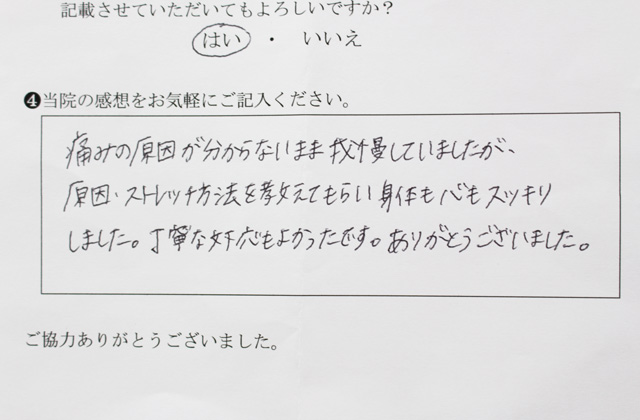 記載させていただいてもよろしいですか?
はい ・ いいえ
❹当院の感想をお気軽にご記入ください。
痛みの原因が分からないまま我慢していましたが、
原因・ストレッチ方法を教えてもらい身体も心もスッキリ
しました。丁寧な対応もよかったです。ありがとうございました。
ご協力ありがとうございました。